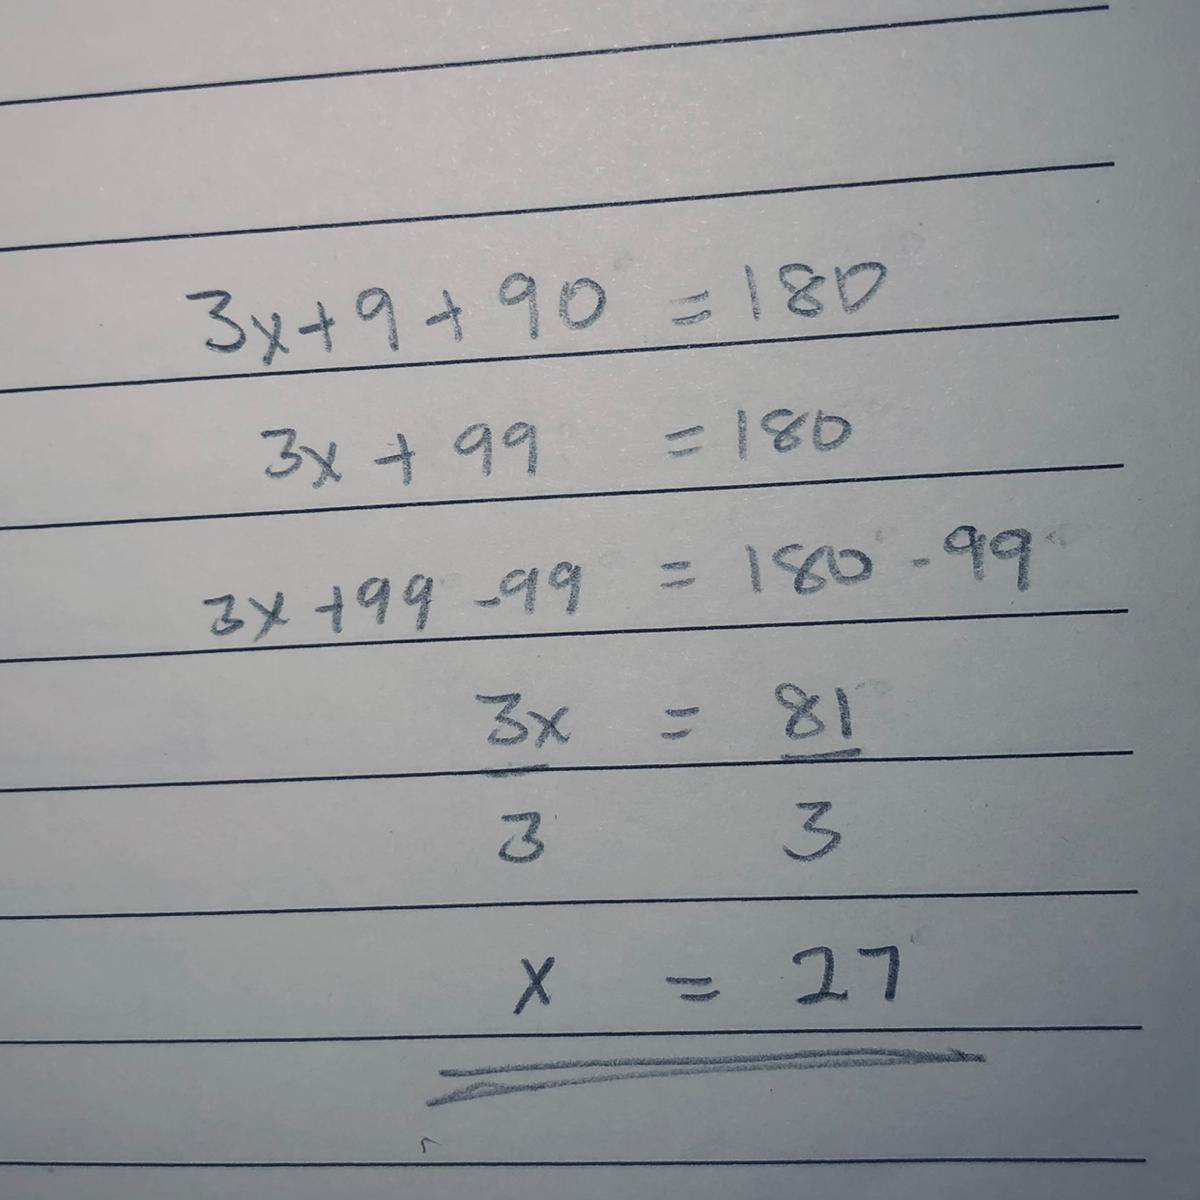 3x+9+90 = 180
3x + 99 = 180
3x +99 -99 = 180 - 99
3x = 81
3 3
x = 27